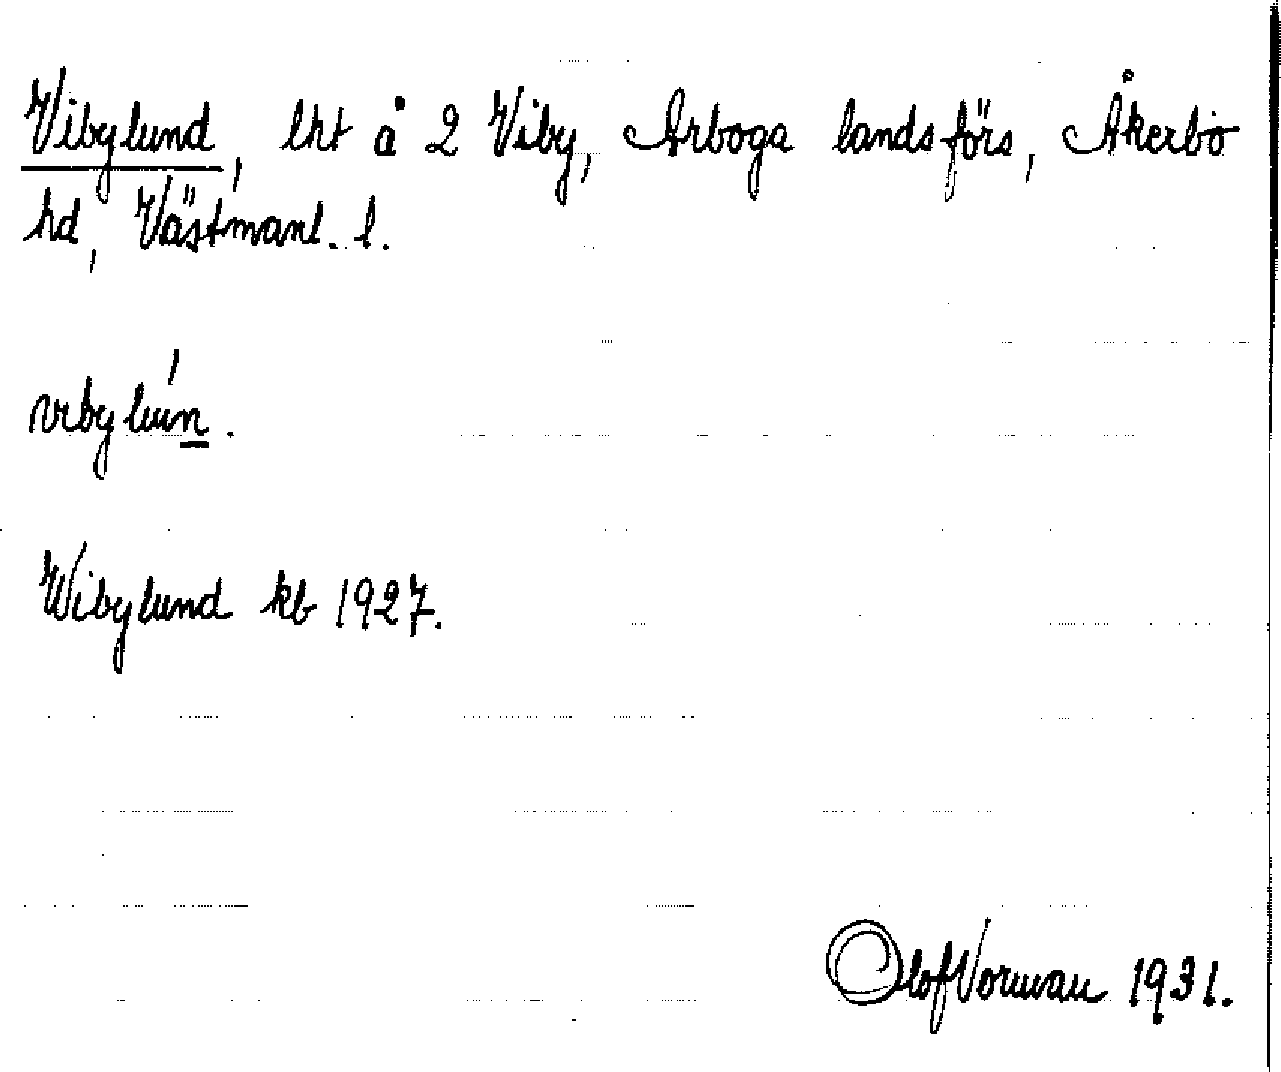 Vibylund, lht å 2 Viby, Arboga landsförs, Åkerbo
hd, Västmanl. l.
vɩbylún.
Wibylund kb 1927.
Olof Vorman 1931.